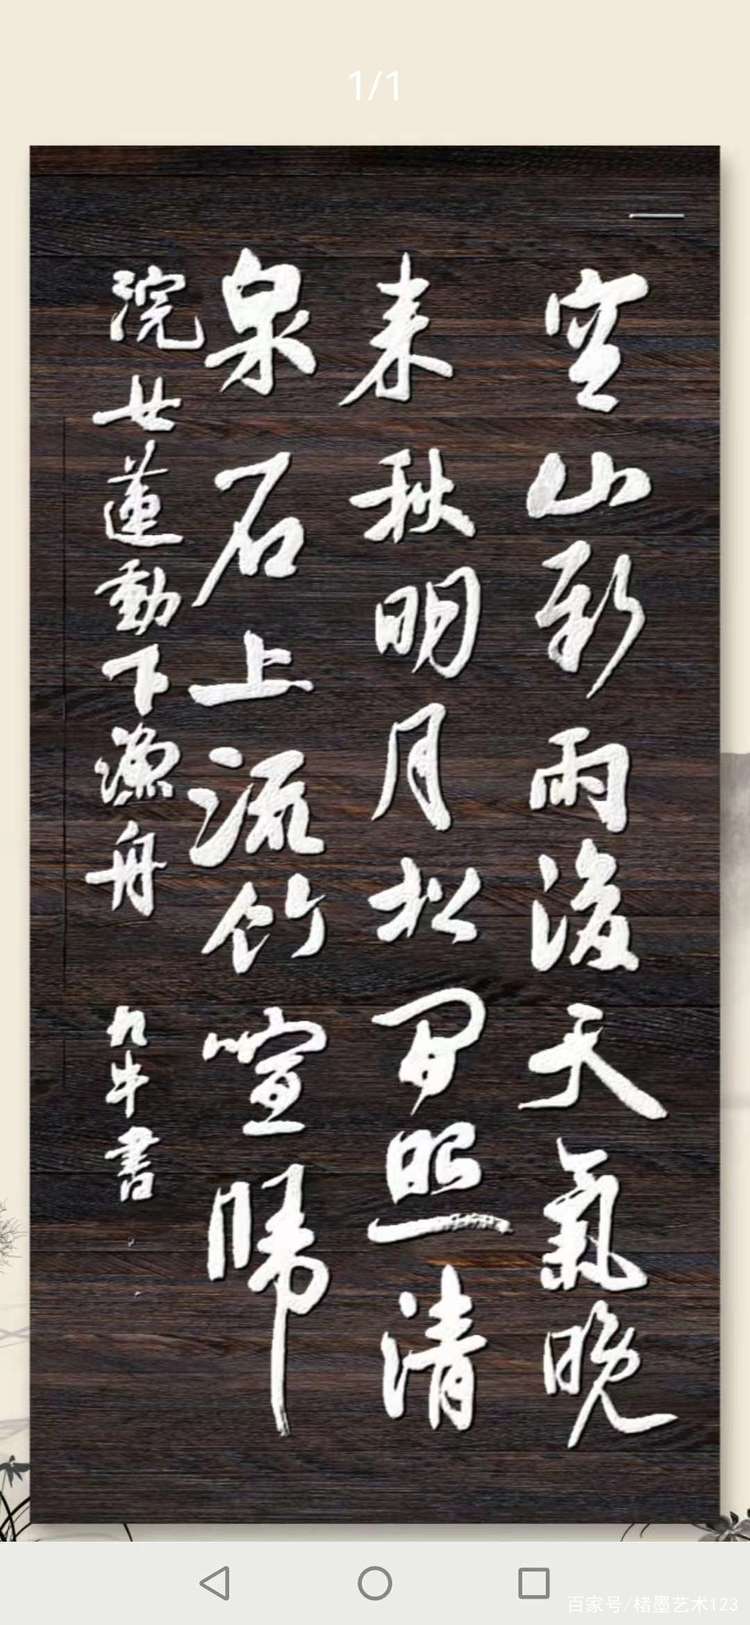 1/1
空山新雨後天氣晚
来秋明月松間照清
泉石上流竹喧歸
浣女蓮動下漁舟
九牛書
百家号/楮墨艺术123